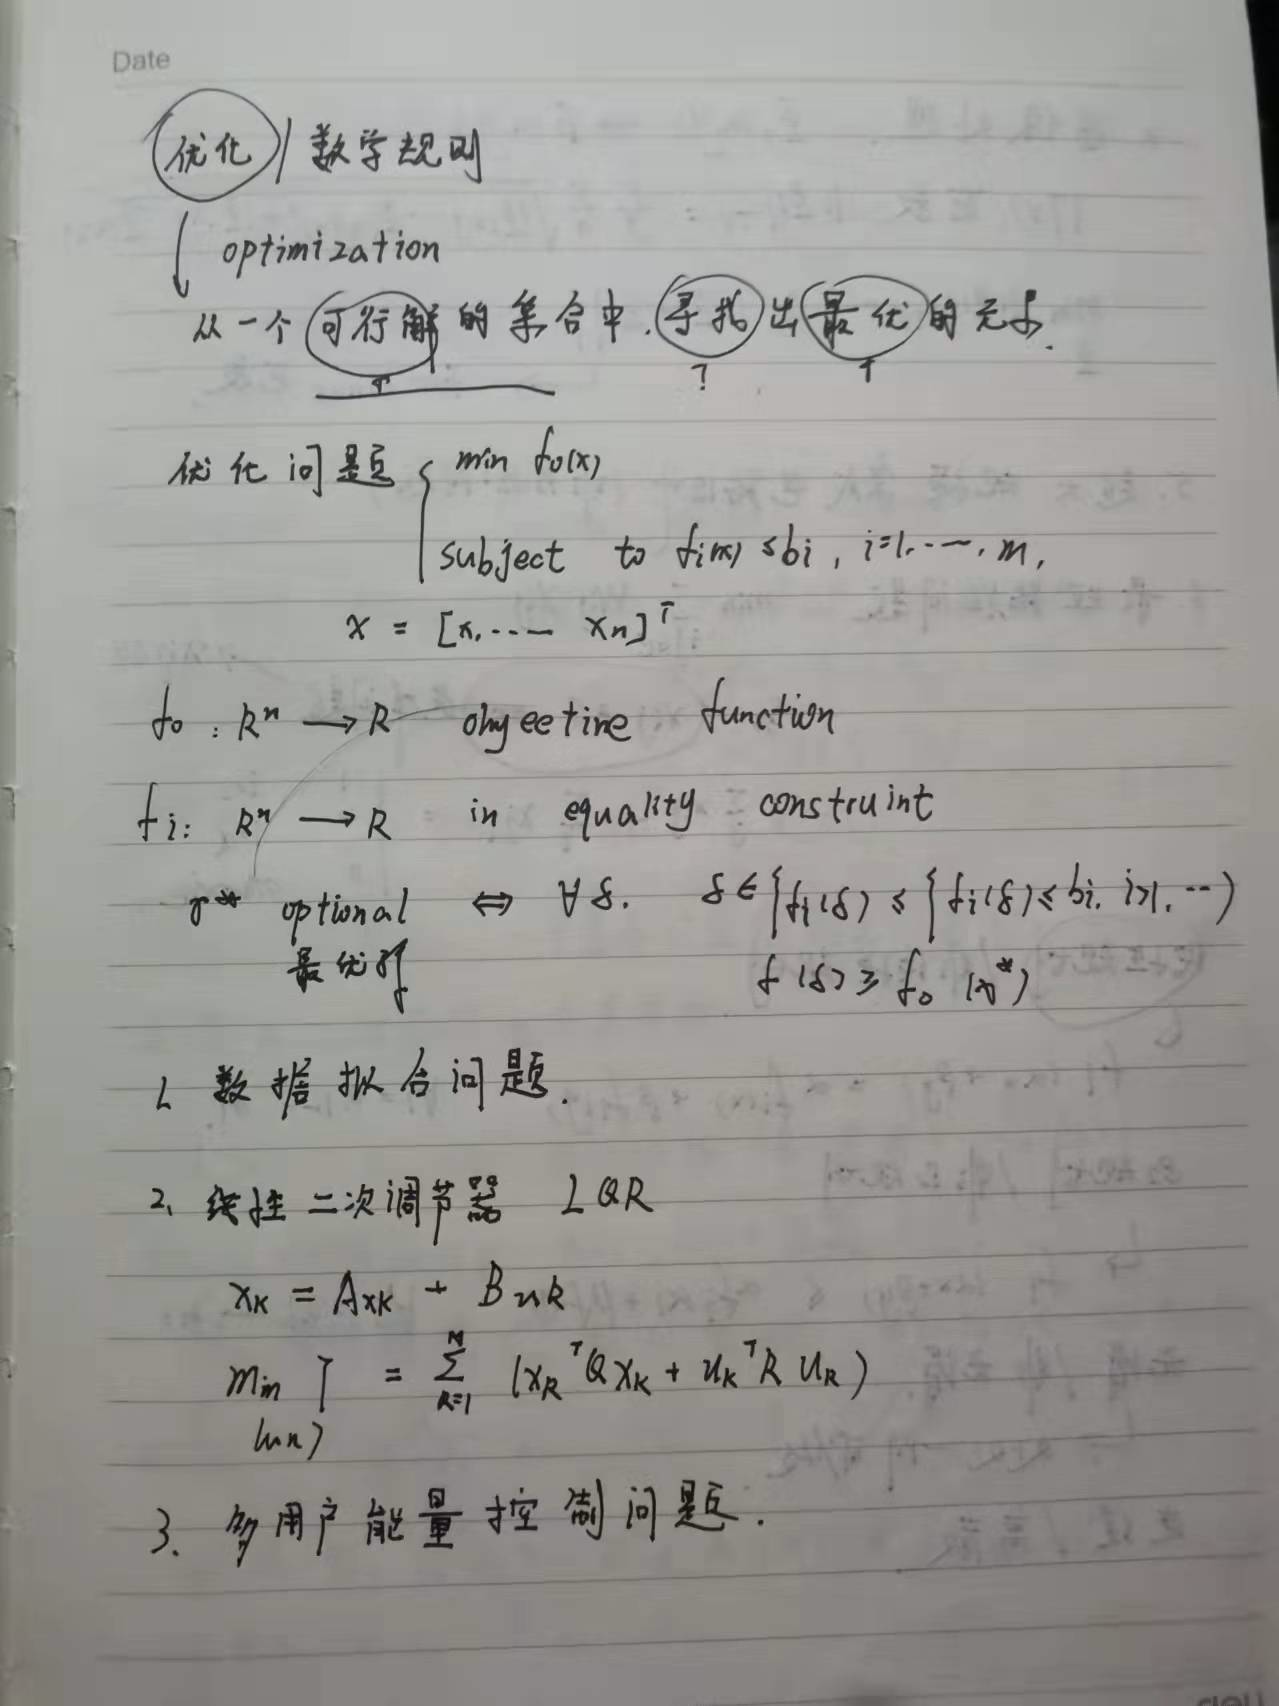 Date
优化 / 数学规则
optimization
从一个可行解的集合中.寻找出最优的元素.
?
优化问题 { min f₀(x)
subject to fi(x) ≤ bi, i=1,..., m,
x = [x,.... xn]ᵀ
f₀: Rⁿ → R objective function
fi: Rⁿ → R in equality construint
optional ⇔ ∀δ. δ ∈ {fi(δ) ≤ {fi(δ) ≤ bi. i>1, ...}
最优解 f(δ) ≥ f₀
1. 数据拟合问题.
2. 线性二次调节器 LQR
xk = Axk + Buk
min J = Σ (xRᵀQxk + ukᵀR uR)
R=1
3. 多用户能量控制问题.